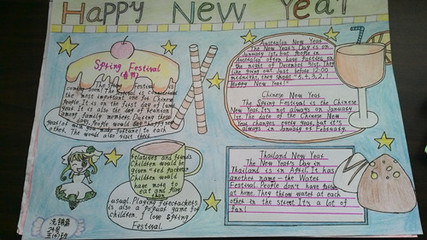 Happy New Year!
Spring Festival
(春节)
coming soon! The Spring Festival is
the most important one for Chinese
people. It is on the first day of lunar
year. It is the day of reunion
among family members. During these
days, people would say
each other.
The words also visit their
relatives and friends.
Children would be
given red packets
would
have more to
eat and play
usual. Playing firecrackers
is also a usual game for
children. I love Spring
Festival.
Australia New Year
The New Year's Day is on
January 1st, but people in
Australia often have parties on
the night of December 31st. They
like going out. Just before 12:00
midnight, they shout "5, 4, 3, 2, 1,
Happy New Year!"
Chinese New Year
The Spring Festival is the Chinese
New Year. It's not always on January
1st. The date of the Chinese New
Year changes every year, but it's
always in January or February.
Thailand New Year
The New Year's Day in
Thailand is in April. It has
another name - the Water
Festival. People don't have parties
at home. They throw water at each
other in the street. It's a lot of
fun!